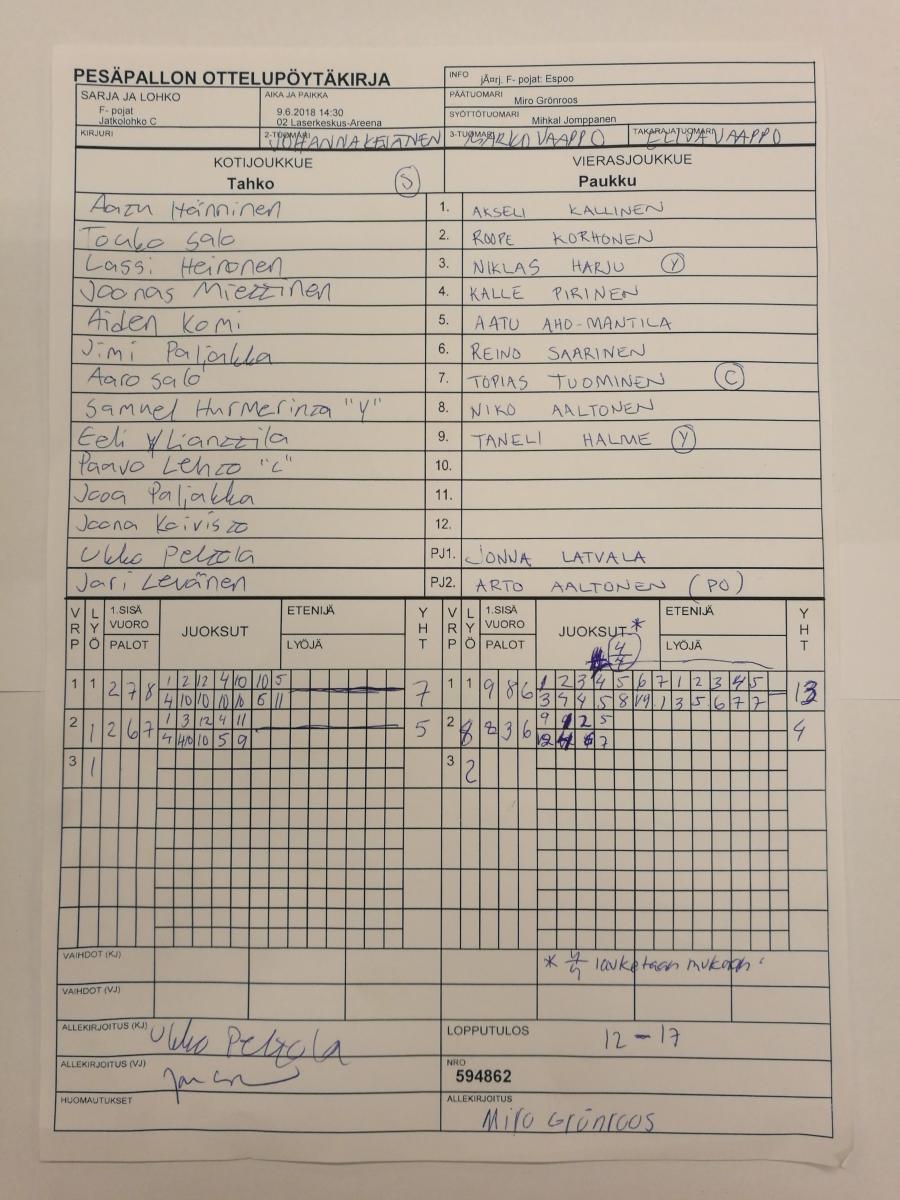 PESÄPALLON OTTELUPÖYTÄKIRJA
INFO jÄ¤rj. F- pojat: Espoo
SARJA JA LOHKO
F- pojat
Jatkolohko C
AIKA JA PAIKKA
9.6.2018 14:30
02 Laserkeskus-Areena
PÄÄTUOMARI Miro Grönroos
SYÖTTÖTUOMARI Mihkal Jomppanen
KIRJURI
2-TUOMARI JOHANNA KETÄNEN
3-TUOMARI VAAPPO
TAKARAJATUOMARI VAAPPO
KOTIJOUKKUE
Tahko S
VIERASJOUKKUE
Paukku
Aatu Hänninen 1. AKSELI KALLINEN
Touko Salo 2. ROOPE KORHONEN
Lassi Heironen 3. NIKLAS HARJU Y
Joonas Miettinen 4. KALLE PIRINEN
Aiden Komi 5. AATU AHO-MANTILA
Jimi Paljakka 6. REINO SAARINEN
Aaro Salo 7. TOPIAS TUOMINEN C
Samuel Hurmerinta "Y" 8. NIKO AALTONEN
Eeli Ylianttila 9. TANELI HALME Y
Paavo Lehto "C" 10.
Joona Paljakka 11.
Joona Koivisto 12.
Ukko Peltola PJ1. JONNA LATVALA
Jari Levänen PJ2. ARTO AALTONEN (PO)
VRP LYÖ 1.SISÄ VUORO PALOT JUOKSUT ETENIJÄ LYÖJÄ YHT VRP LYÖ 1.SISÄ VUORO PALOT JUOKSUT * 4/4 ETENIJÄ LYÖJÄ YHT
1 1 2 7 8 1 2 12 4 10 10 5 7 1 1 9 8 6 1 2 3 4 5 6 7 1 2 3 4 5 13
4 10 10 10 10 6 11 3 4 4 5 8 1 3 5 6 7 7
2 1 2 6 7 1 3 12 4 11 5 2 8 8 3 6 9 1 2 5 4
4 10 10 5 9 12 4 6 7
3 1 3 2
VAIHDOT (KJ) * 4/4 lasketaan mukaan
VAIHDOT (VJ)
ALLEKIRJOITUS (KJ) Ukko Peltola
LOPPUTULOS 12 - 17
ALLEKIRJOITUS (VJ)
NRO
594862
HUOMAUTUKSET
ALLEKIRJOITUS
Miro Grönroos